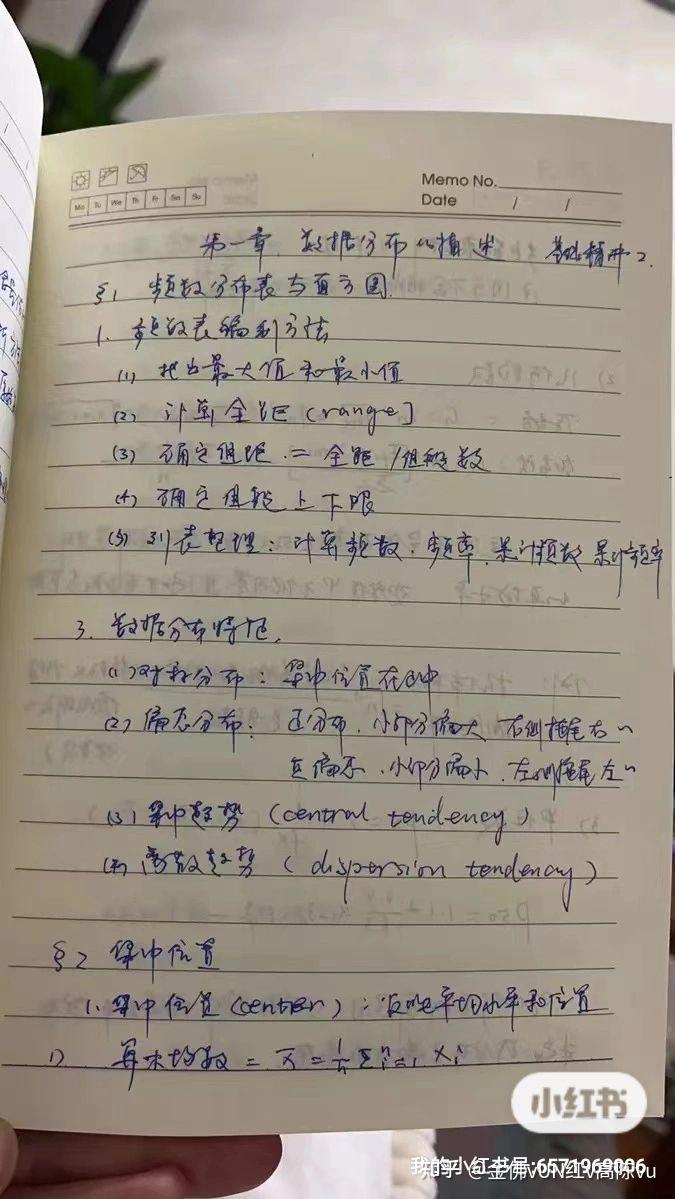 Memo No.
Mo Tu We Th Fr Sa Su
Date / /
第一章. 数据分布的描述 基础精讲2.
§1 频数分布表与直方图.
1. 频数表编制方法
(1) 找出最大值和最小值
(2) 计算全距 (range]
(3) 确定组距 = 全距/组段数
(4) 确定组段上下限
(5) 列表整理: 计算频数、频率、累计频数 累计频率
3. 数据分布特征.
(1) 对称分布: 集中位置在正中
(2) 偏态分布: 正分布. 小部分偏大 右侧拖尾右~
负偏态. 小部分偏小. 左侧拖尾左~
(3) 集中趋势 (central tendency)
(4) 离散趋势 (dispersion tendency)
§2 集中位置
1. 集中位置 (center): 反映平均水平和位置
1) 算术均数 = x̄ = 1/n Σⁿᵢ₌₁ xᵢ
小红书
我的小红书号:6571969006
知乎